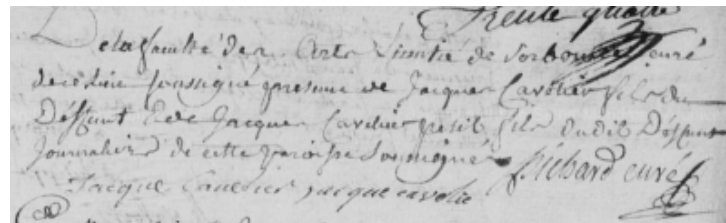 Trente quatre
De la faculté des Arts Société de Sorbonne curé
de ce lieu soussigné presence de Jacques Cavelier fils du
Deffunt Et de Jacques Cavelier petit fils dudit Deffunt
Journaliers de cette paroisse soussignés
Jacque Cavelier jacque cavelie Richard curé